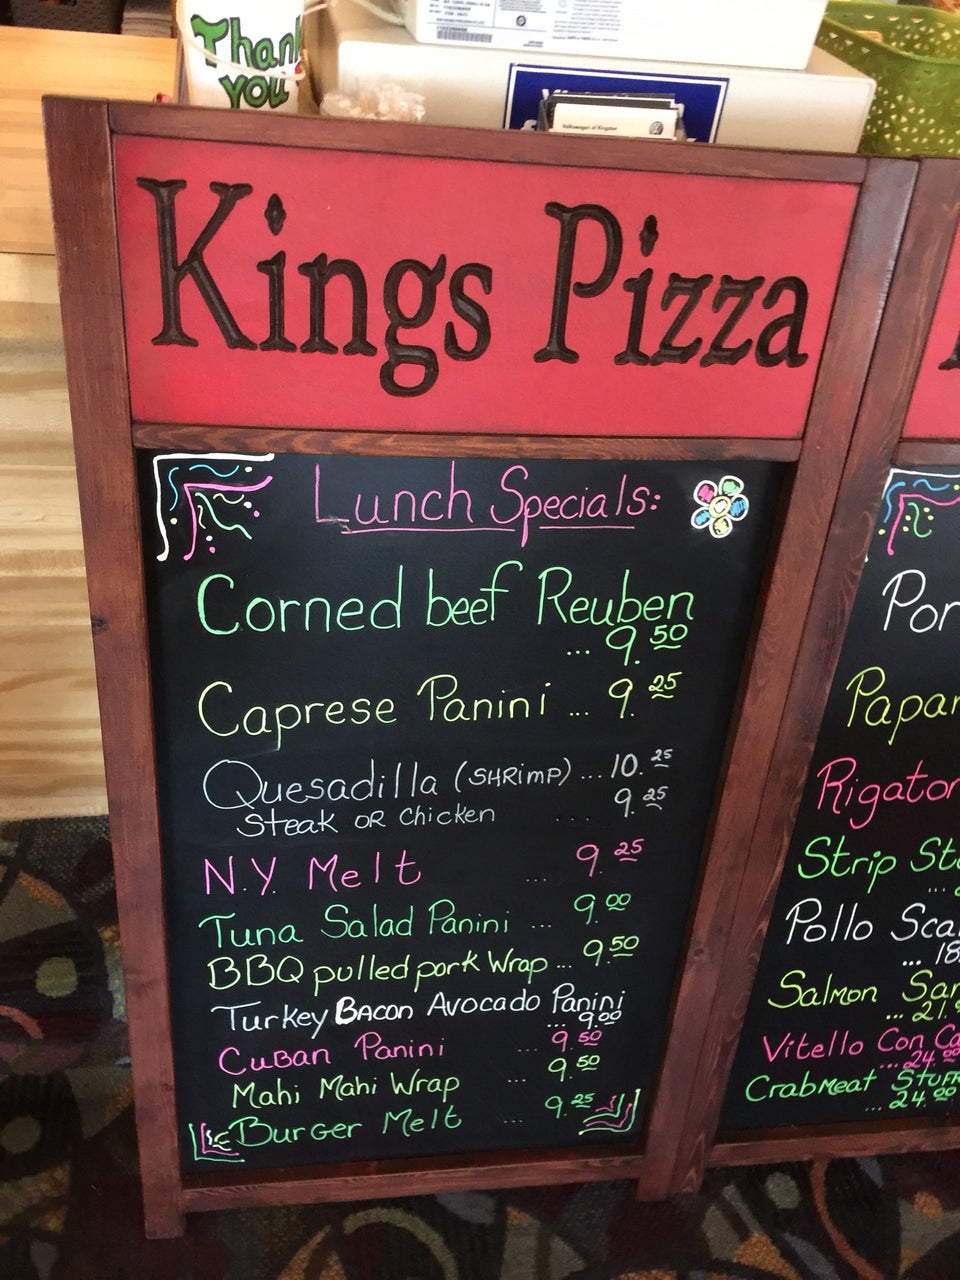 Thank
you
Volkswagen of Kingston
Kings Pizza
Lunch Specials:
Corned beef Reuben
... 9.50
Caprese Panini ... 9.25
Quesadilla (SHRimP) ... 10.25
Steak OR Chicken ... 9.25
N.Y. Melt ... 9.25
Tuna Salad Panini ... 9.00
BBQ pulled pork Wrap ... 9.50
Turkey Bacon Avocado Panini
... 9.00
Cuban Panini ... 9.50
Mahi Mahi Wrap ... 9.50
Burger Melt ... 9.25
Por
Papar
Rigaton
Strip St
Pollo Sca
... 18
Salmon Sa
... 21.
Vitello Con Ca
... 24.00
Crabmeat Stuff
... 24.00